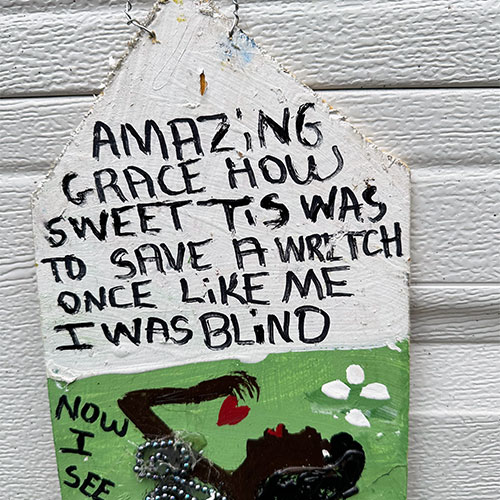 AMAZiNG
GRACE HOW
SWEET TiS WAS
TO SAVE A WRETCH
ONCE LiKE ME
I WAS BLiND
NOW
I
SEE